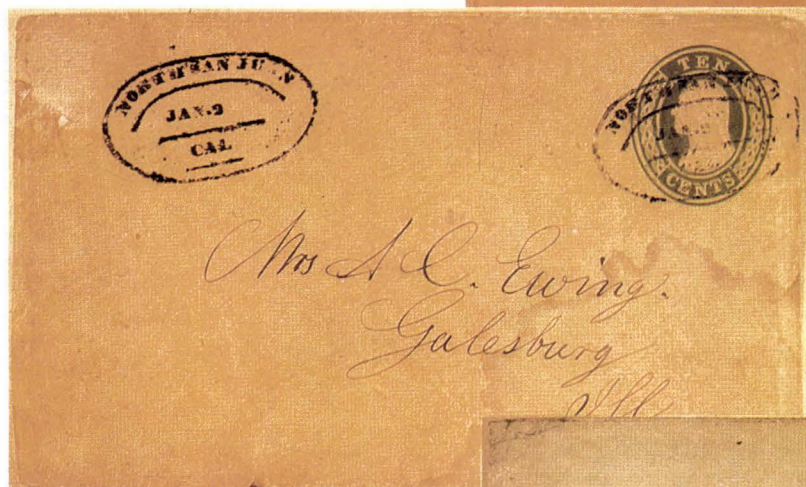 NORTH SAN JUAN
JAN. 2
CAL
NORTH SAN
JAN. 2
TEN
CENTS
Mrs A C. Ewing.
Galesburg
Ill